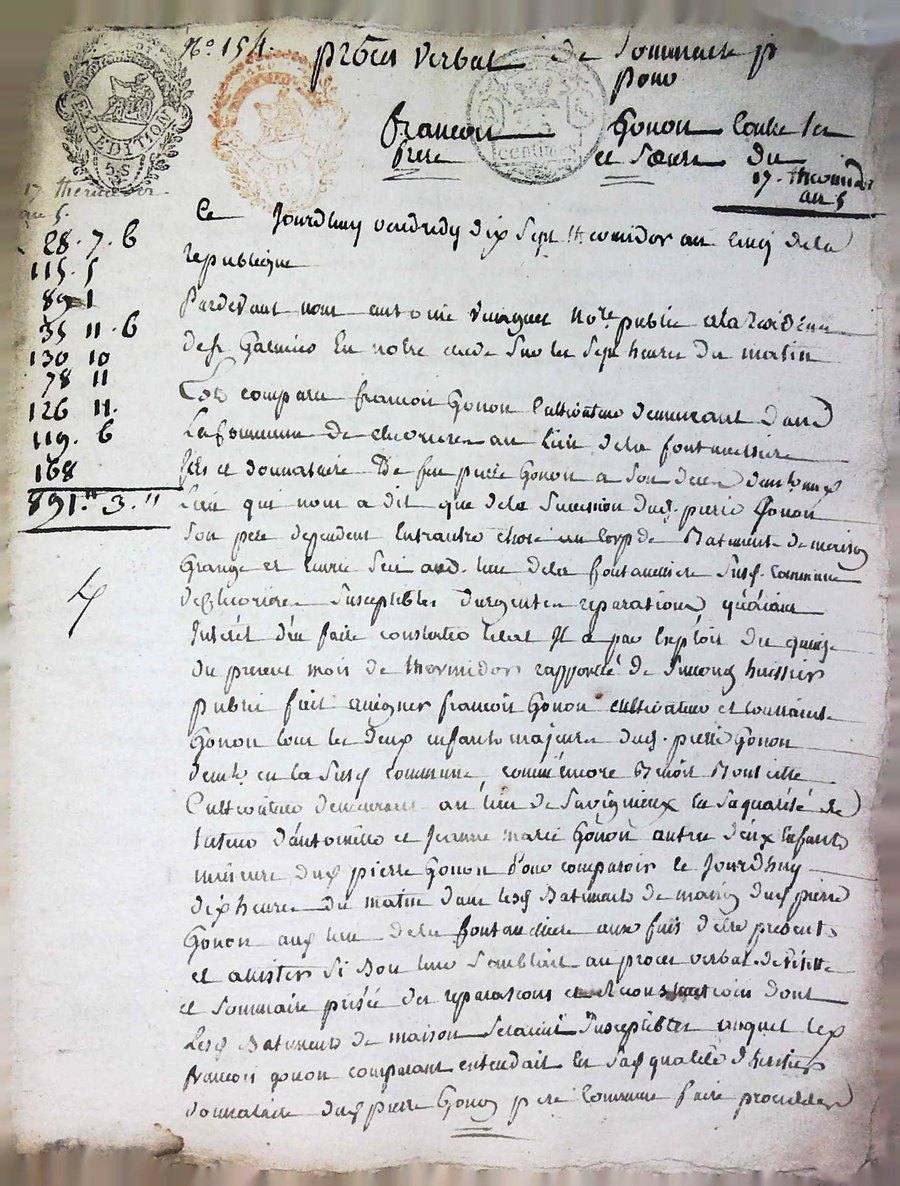 N.o 154. procès verbal de Sommaire p
pour
françois Gonon Contre Ses
frere et Sœurs du
17. thermidor
an 5
EXPÉDITION
5.S
centimes
17. thermidor
an 5.
28. 7. 6
115. 5
89 1
35 11. 6
130 10
78 11
126 11.
119. 6
168
891." 3."
Ce Jourdhuy vendredy dix Sept thermidor an Cinq de la
republique
Pardevant nous antoine no.re public a la Residence
de St Galmier En notre etude Sur les Sept heures du matin
Est comparu françois Gonon Cultivateur demeurant dans
La Commune de chevrieres au Lieu de la fontanessiere
fils et donnataire De feu pierre Gonon a Son deces
Lieu qui nous a dit que de la Sucession dud. pierre Gonon
Son pere dependent Entrautre chose un Corp de Batiments de maison
Grange et Ecurie au d. lieu de la fontanessiere Susd. commune
de Chevriere Susceptibles durgentes reparations quaiant
Interêt d'en faire constater letat Il a par Exploit du quinze
du present mois de thermidor rapporté de huissier
public fait assigner françois Gonon cultivateur et
Gonon tous les deux enfants majeurs dud. pierre Gonon
dem.ts en la Susd commune, comme encore Benoit
Cultivateur demeurant au lieu de Savignieux En Sa qualité de
tuteur d'antoinette et Jeanne marie Gonon autre deux Enfants
mineurs dud pierre Gonon pour comparoir le Jourdhuy
dix heures du matin dans lesd Batiments de maison dud pierre
Gonon aud lieu de la fontanessiere aux fins detre presents
et assister Si Bon leur Semblait au procès verbal de visitte
et Sommaire prisée des reparations et reconstructions dont
Lesd Batiments de maison Seraient Susceptibles auquel led
françois gonon comparant entendait En Sad qualité d'heritier
donnataire dud pierre Gonon pere commun faire proceder